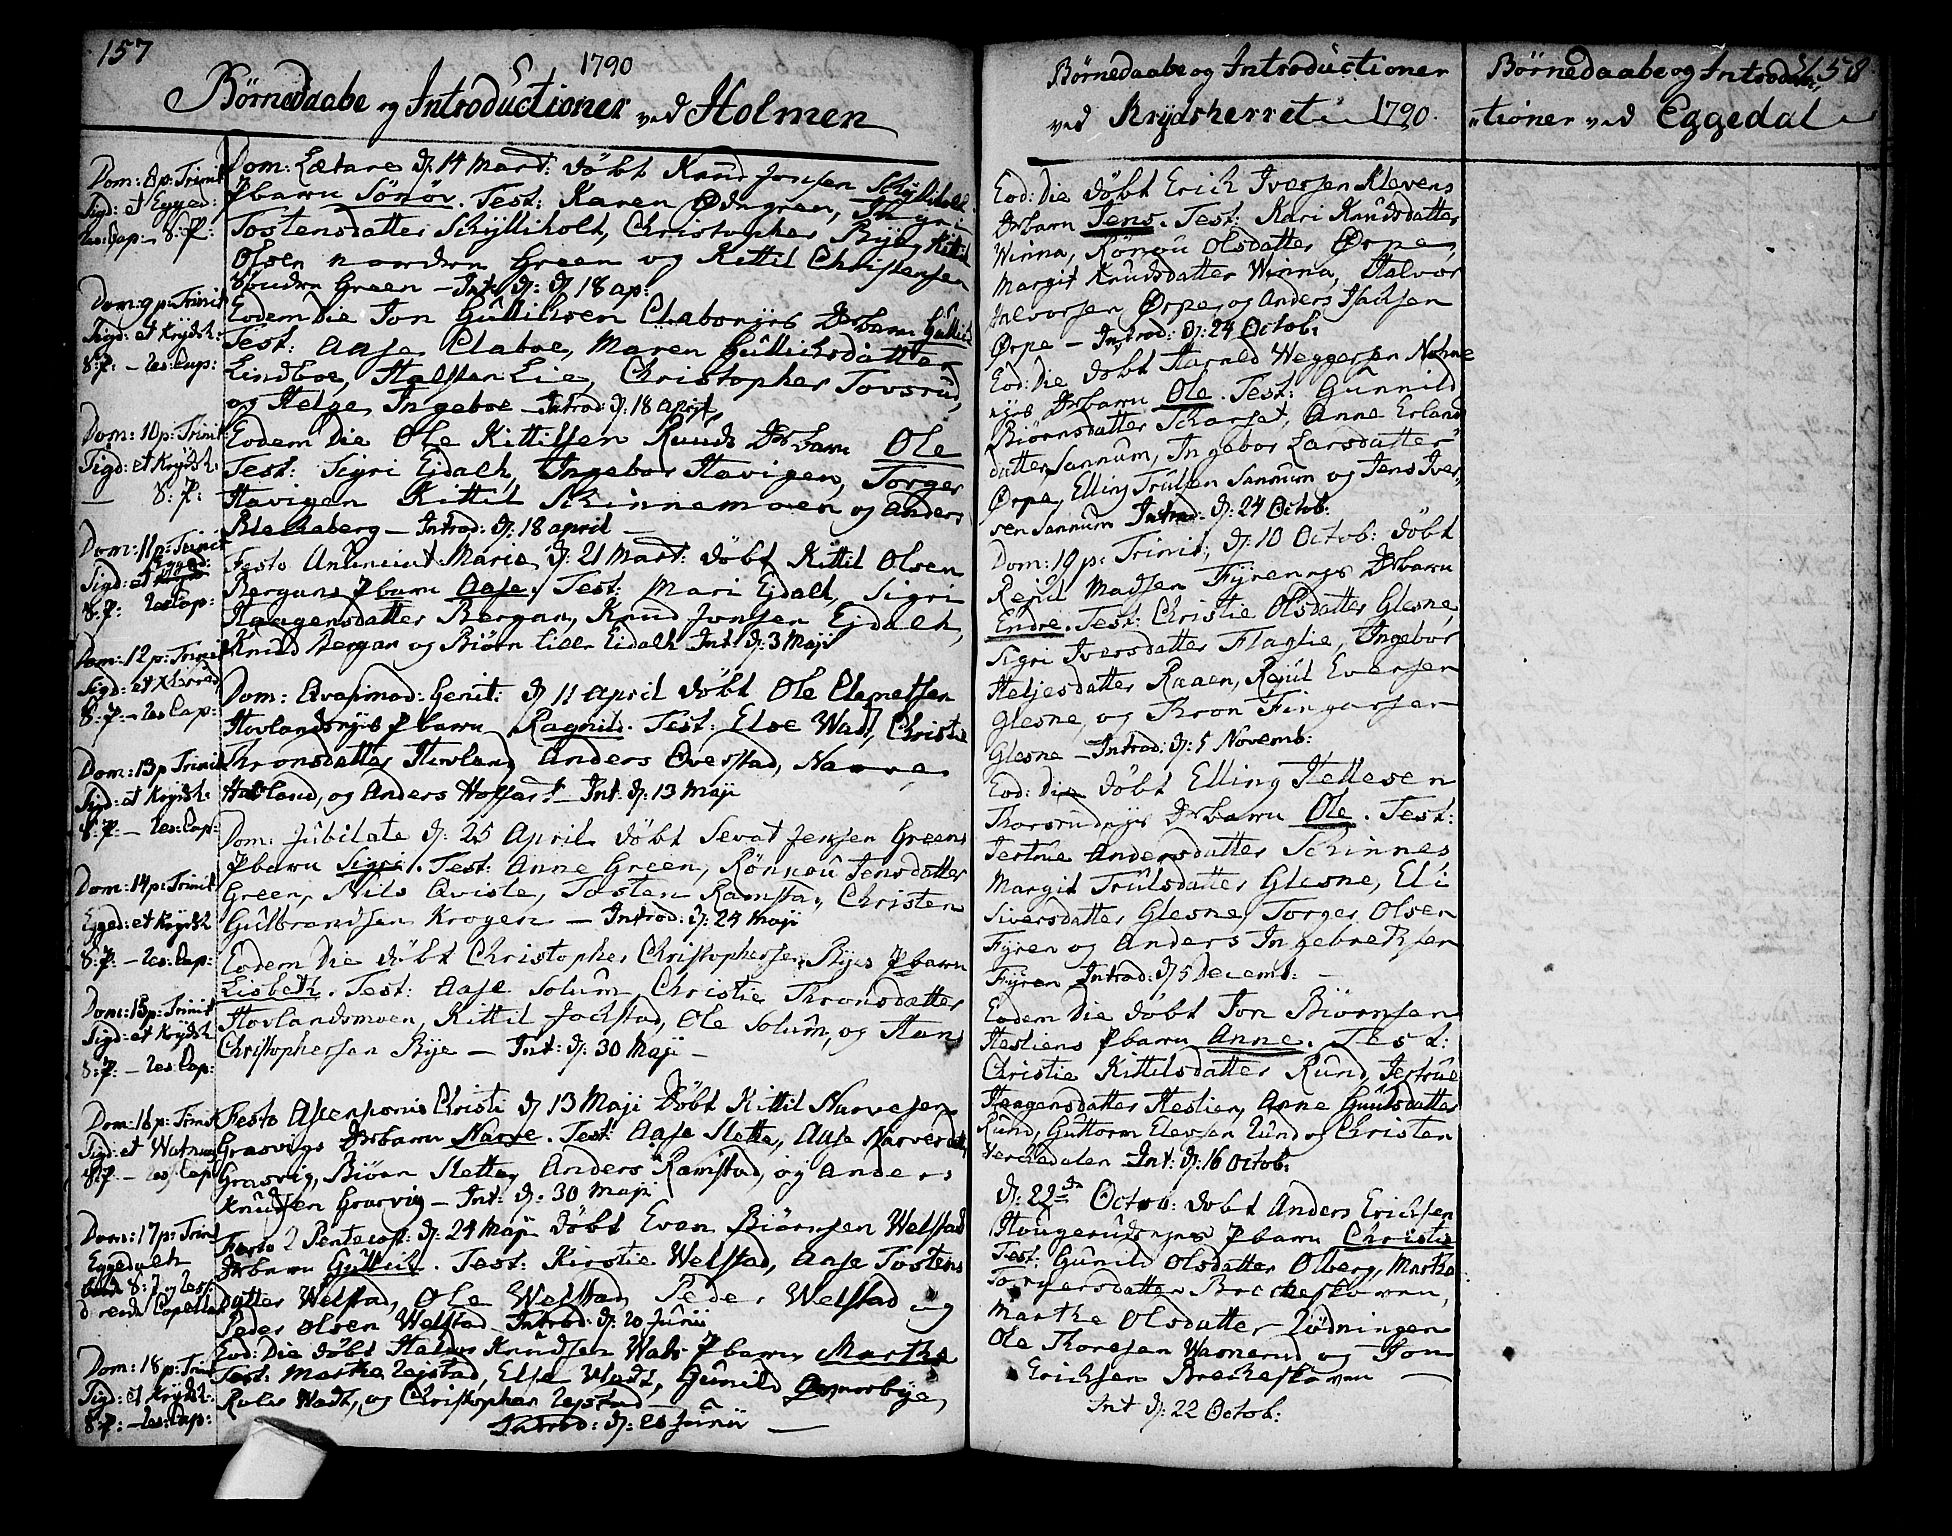 157
1790
Børnedaabe og Introductioner ved Holmen
Dom: 8 p: Trinit
Sigd: et Egged:
S: P:
Dom: 9 p: Trinit
Sigd: et Krydsh:
S: P:
Dom: 10 p: Trinit
Sigd: et Krydsh:
S: P:
Dom: 11 p: Trinit
Sigd: et
S: P:
Dom: 12 p: Trinit
Sigd: et
S: P:
Dom: 13 p Trinit
Sigd: et Krydsh:
S: P:
Dom: 14 p: Trinit
Egged: et Krydsh
S: P:
Dom: 15 p: Trinit
Sigd: et Krydsh
S: P:
Dom: 16 p: Trinit
Sigd: et
S: P:
Dom: 17 p: Trinit
Eggedalh
Dom: 18 p: Trinit
Sigd: et Krydsh:
S: P:
Dom: Lætare d: 14 Mart: døbt Knud Jonsen
P barn Sønøv. Test: Karen Ødngreen,
Tostensdatter Schylliholt, Christopher Bye, Kittil
Olsen nordrn Green og Kittil Christensen
Søndrn Green – Int: d: 18 ap:
Eodem Die Jon Gullichsen Clabonijs Drbarn Gullich
Test: Aase Claboe, Maren Gullichsdatter
Lindboe, Halsten Lie, Christopher Tovsrud,
og Helge Ingeboe – Introd: d: 18 April
Eodem Die Ole Kittilsen Ruuds Drbarn Ole
Test: Sigri Ejdalh, Ingebor Havigen, Torger
Havigen Kittil Schinnemoen og Anders
Blechaberg – Introd: d: 18 april –
Festo Anunciat: Mariæ d: 21 Mart: døbt Kittil Olsen
Bergans P barn Aase. Test: Mari Ejdalh, Sigri
Haagensdatter Bergan, Knud Jonsen Ejdalh,
Knud Bergan og Biørn Lille Eidalh Int: d: 3 Maji
Dom: Qvasimod: Genit: d 11 April døbt Ole Clemetsen
Hovlandsnijs P barn Ragnild. Test: Else Wadt, Christie
Thronsdatter Howland Anders Overstad, Narve
Howland, og Anders Hoffart – Int: d: 13 Maji
Dom: Jubilate d: 25 April døbt Sevat Jensen Greens
P barn Sigri. Test: Anne Green, Rønnou Jensdatter
Green, Nils Qviste, Tosten Ramstad, Christen
Gulbrandsen Krogen – Introd: d: 24 Maji
Eodem Die døbt Christopher Christophersen Byes P barn
Lisbeth. Test: Aase Solum, Christie Thronsdatter
Hovlandsmoen, Kittil Jochstad, Ole Solum, og Hans
Christophersen Bye – Int: d: 30 Maji –
Festo Ascensionis Christi d 13 Maji døbt Kittil Narvesen
Grasvigs Drbarn Narve. Test: Aase Sletta, Aase Narvesdatter
Grasvig, Biørn Slette, Anders Ramstad, og Anders
Knudsen Grasvig – Int: d: 30 Maji
Festo 2 Pentecost: d: 24 Maji døbt Even Biørnsen Welstad
Drbarn Gullich. Test: Kirstie Welstad, Aase Tostens
datter Welstad, Ole Welstad, Peder Welstad og
Peder Olsen Welstad. Introd: d: 20 Junii
Eod: Die døbt Halvor Knudsen Wads P barn Marthe
Test: Marthe Lejstad, Else Wadt, Gunild
Wadt, og Christopher Lejstad
Introd: d: 20 Junii –
Børnedaabe og Introductioner
ved Krydsherret 1790.
Eod: Die døbt Erich Iversen Klevens
Drbarn Jens. Test: Kari Knudsdatter
Winna, Rønnou Olsdatter Ørpe,
Margit Knudsdatter Winna, Halvor
Halvorsen Ørpe, og Anders Isachsen
Ørpe – Introd: d: 24 Octob:
Eod: Die døbt Harned Weggersen
Drbarn Ole. Test: Gunnild
Biørnsdatter Scharset, Anne Erland
datter Sannum, Ingebor Larsdatter
Ørpe, Elling Trulsen Sannum og Jens Iver
sen Sannum Introd: d: 24 Octob:
Dom: 19 p: Trinit; d: 10 Octob: døbt
Rejul Madsen Fyrennijs Drbarn
Endre. Test: Christie Olsdatter Glesne,
Sigri Iversdatter Flaglie, Ingebor
Heljesdatter Raaen, Rejul Eversen
Glesne, og Thron Fingarsen
Glesne – Introd: d: 5 Novemb:
Eod: Die døbt Elling Hellesen
Thorsrudnijs Drbarn Ole. Test:
Jertrue Andersdatter Schinnes
Margit Trulsdatter Glesne, Eli
Siversdatter Glesne, Torger Olsen
Fyren og Anders Ingebretsen
Fyren Introd: d: 5 Decemb: –
Eodem Die døbt Jon Biørnsen
Hestiens P barn Anne. Test:
Christie Kittilsdatter Rund, Jertrue
Haagensdatter Hestien, Anne Guulsdatter
Rund, Guttorm Elevsen Lund og Christen
Verchedalen Int: d: 16 Octob:
d: 22de Octob: døbt Anders Erichsen
Hougerudsnijs P barn Christie
Test: Gunild Olsdatter Olberg, Marthe
Torgersdatter Brecheskoven,
Marthe Olsdatter Lødningen
Ole Thoresen Wamerud og Jon
Erichsen Brecheskoven –
Int d: 22 Octob:
158
Børnedaabe og Introduc
„tioner ved Eggedal